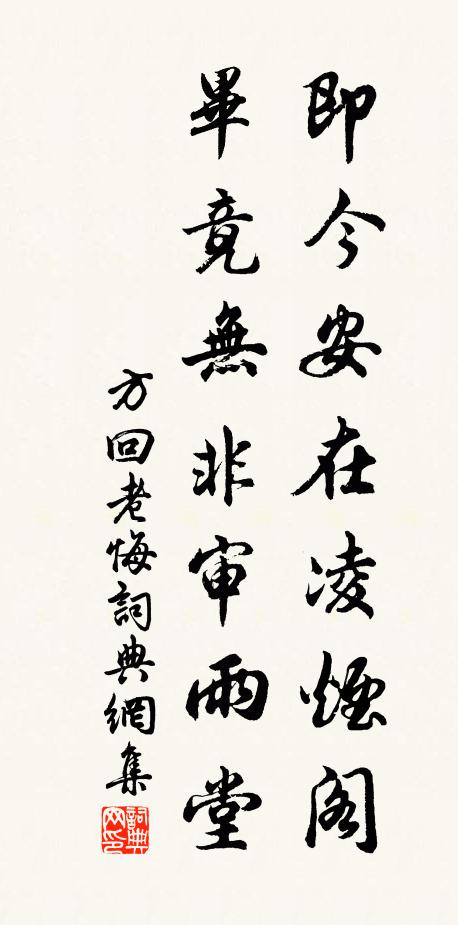 即今安在凌煙阁
畢竟無非审雨堂
方回老悔詞典網集
詞典网印